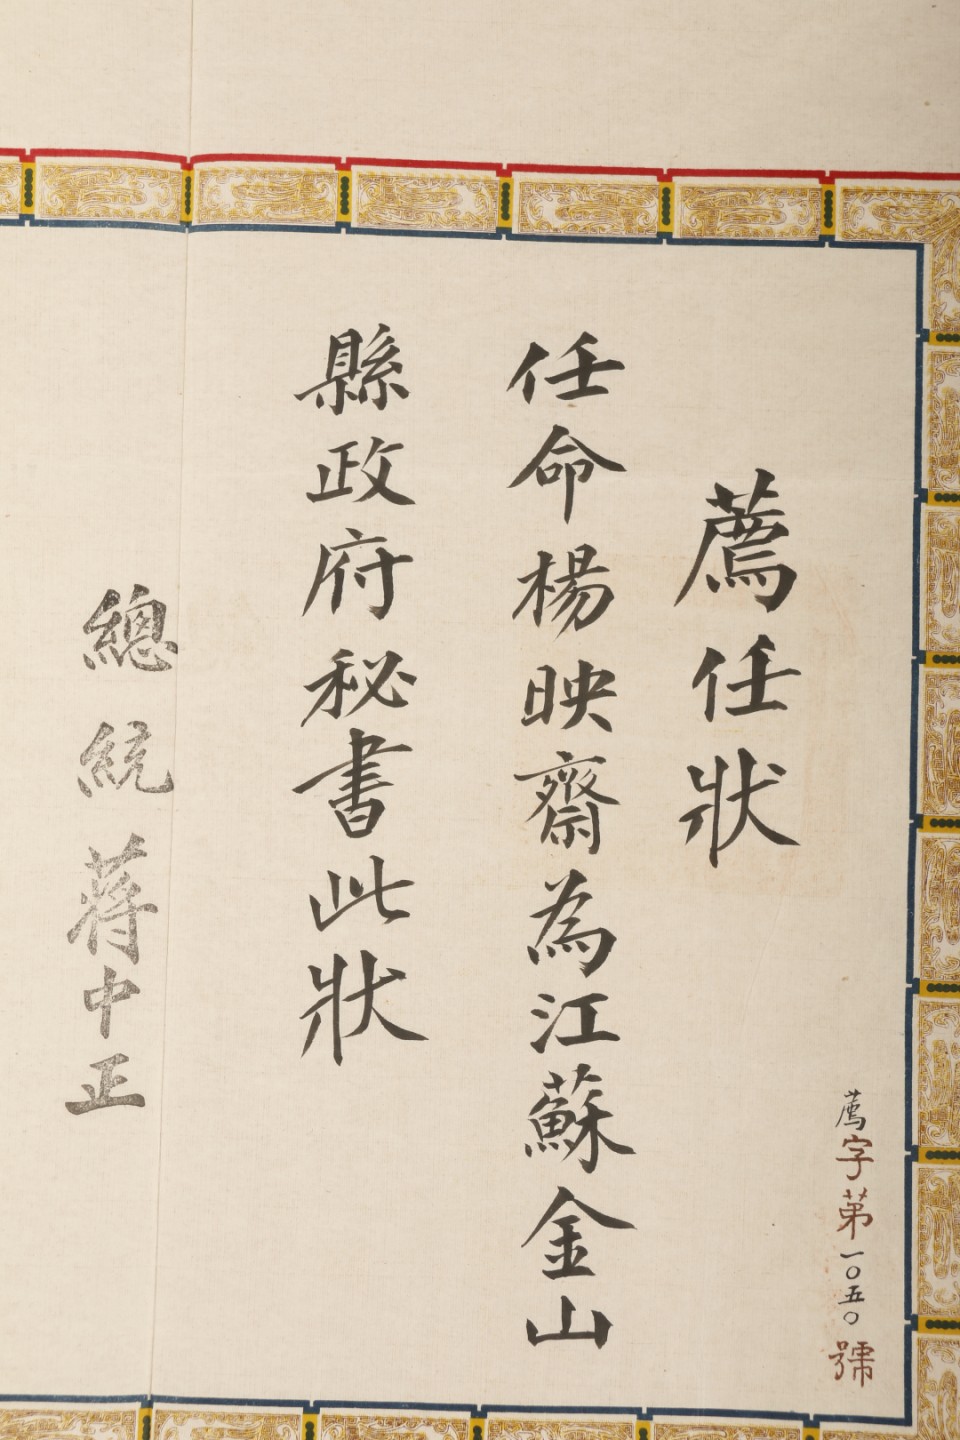 薦字第一〇五〇號
薦任狀
任命楊映齋為江蘇金山
縣政府秘書此狀
總統蔣中正